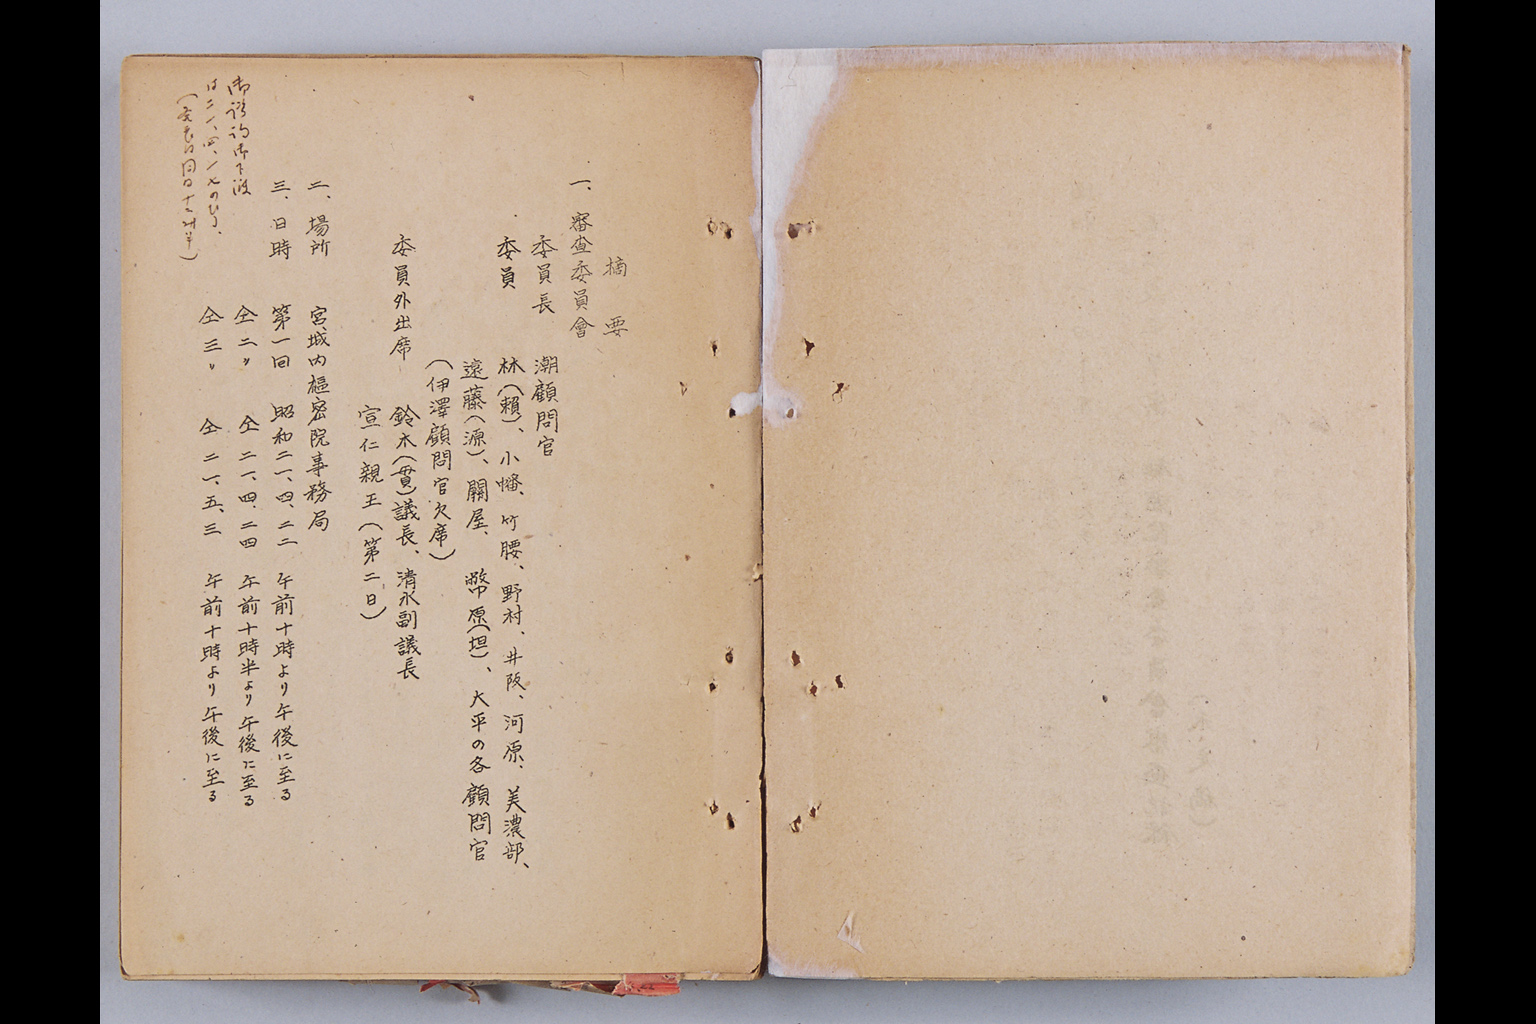 摘要
一、審査委員會
委員長 潮顧問官
委員 林(賴)、小幡、竹腰、野村、井阪、河原、美濃部、
遠藤(源)、關屋、幣原(坦)、大平の各顧問官
(伊澤顧問官欠席)
委員外出席 鈴木(貫)議長、清水副議長
宣仁親王(第二日)
二、場所 宮城内樞密院事務局
三、日時 第一回 昭和二一、四、二二 午前十時より午後に至る
仝二〃 仝二一、四、二四 午前十時半より午後に至る
仝三〃 仝二一、五、三 午前十時より午後に至る
御諮詢御下渡
は二一、四、一七のひる、